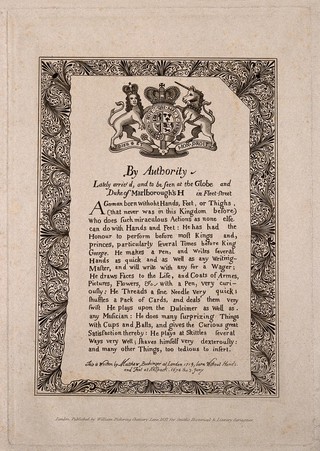 By Authority
Lately arriv'd, and to be seen at the Globe and
Duke of Marlborough's H in Fleet-street
A German born without Hands, Feet, or Thighs,
(that never was in this Kingdom before)
Who does such miraculous Actions as none else
can do with Hands and Feet: He has had the
Honour to perform before most Kings and
princes, particularly several Times before King
George. He makes a Pen, and writes several
Hands as quick and as well as any Writing-
Master, and will write with any for a Wager;
He draws Faces to the Life, and Coats of Armes,
Pictures, Flowers, &c. with a Pen, very curi-
ously: He Threads a fine Needle Very quick;
shuffles a Pack of Cards, and deals them very
swift He plays upon the Dulcimer as Well as
any Musician: He does many surprizing Things
with Cups and Balls, and gives the Curious great
Satisfaction thereby: He plays at Skittles several
Ways very Well; shaves himself very dexterously;
and many other Things, too tedious to insert.
This is Written by Matthew Buchinger at London
and Feet at 1674 the 2 June
London, Published by William Pickering, Chancery Lane